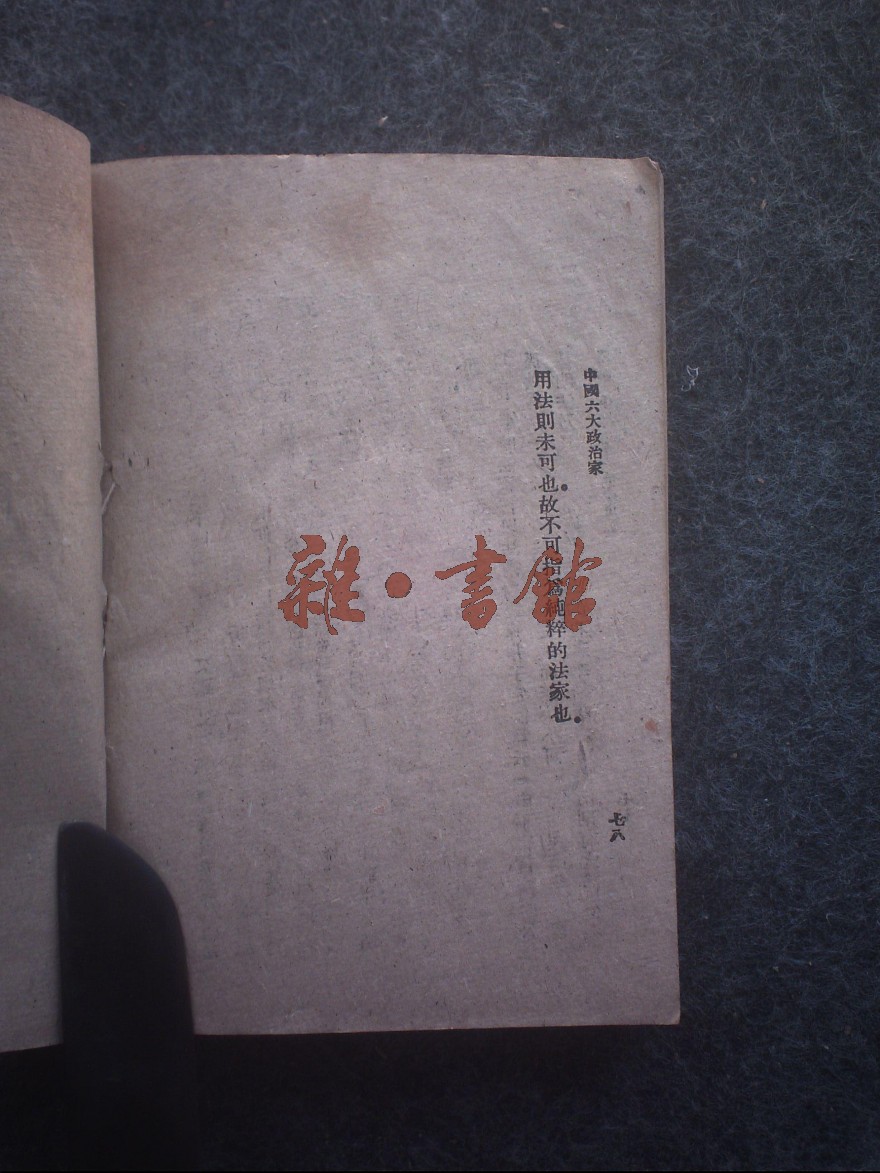 中國六大政治家
用法則未可也。故不可指爲純粹的法家也。
七八
雜·書館